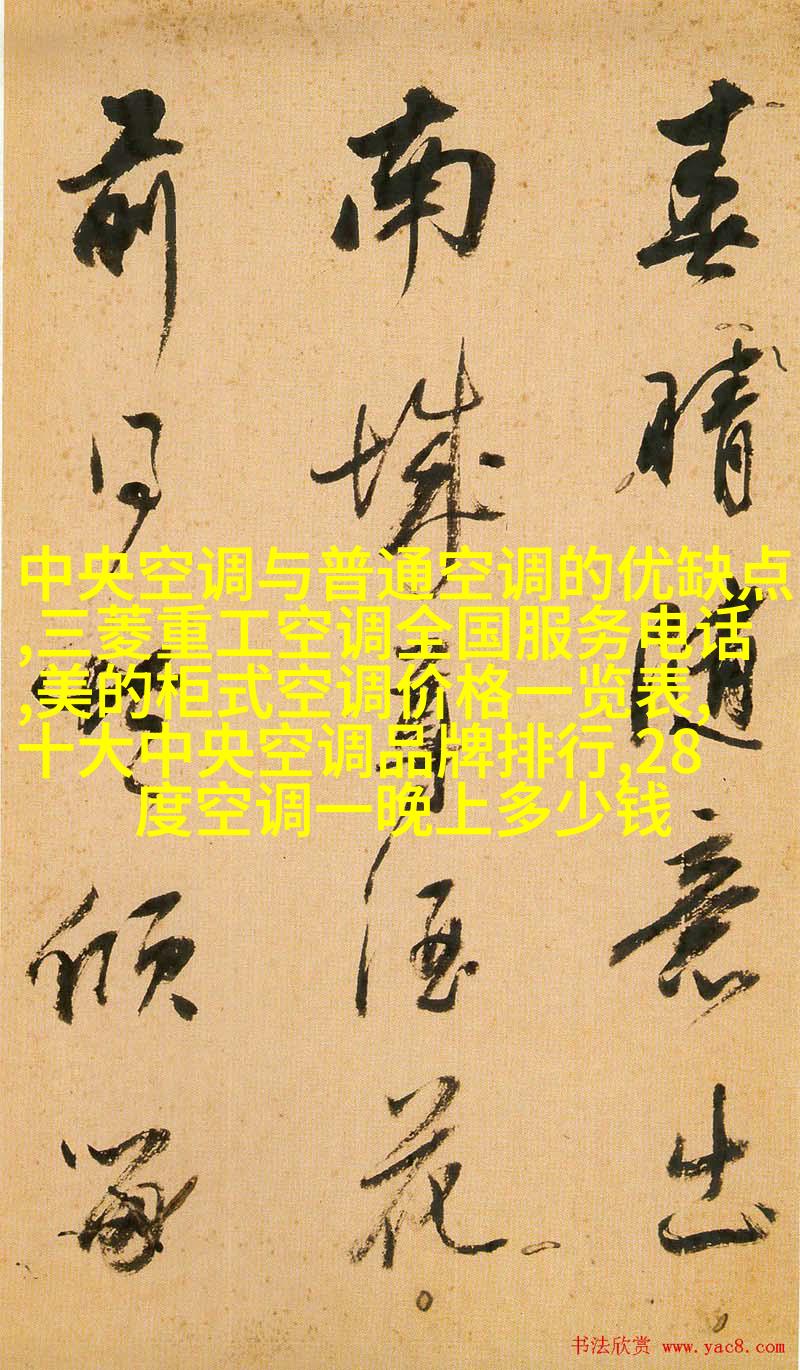 春晴隨意出
南城有酒花
前傾
中央空调与普通空调的优缺点
,三菱重工空调全国服务电话
,美的柜式空调价格一览表,
十大中央空调品牌排行,28
度空调一晚上多少钱
书法欣赏 www.yac8.com